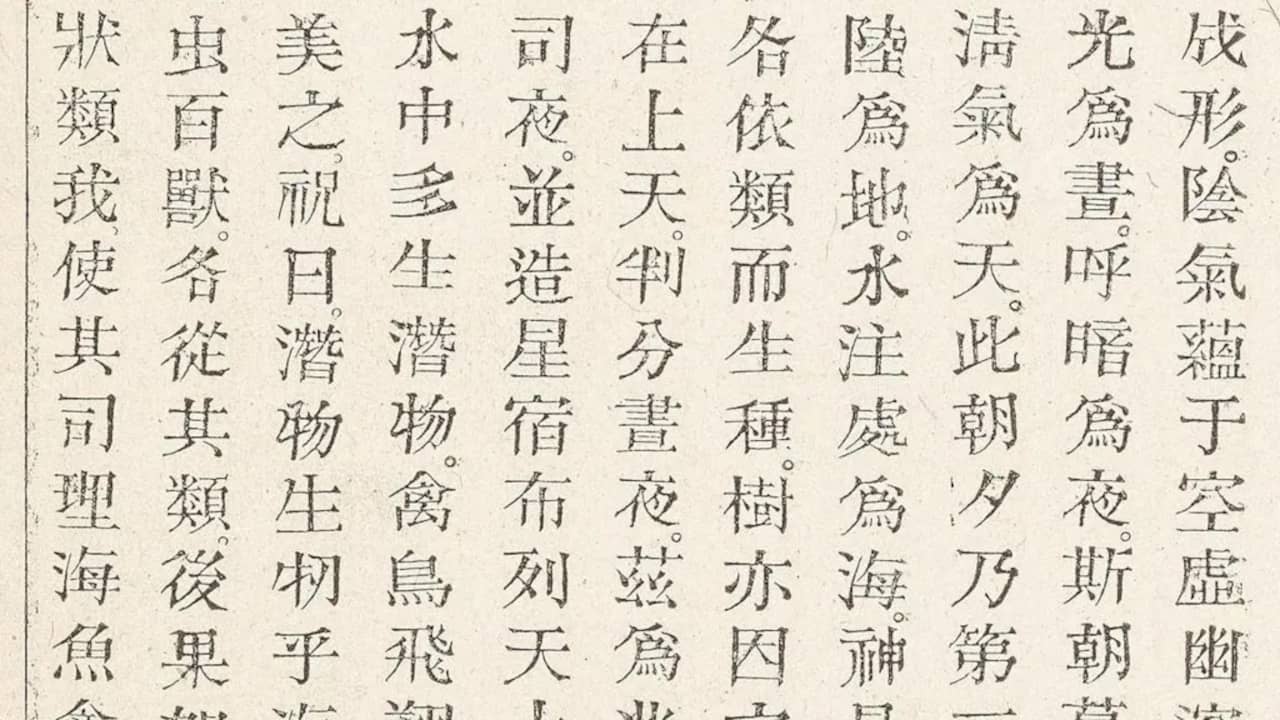 成形。陰氣蘊于空虛幽
光為晝。呼暗為夜。斯朝
淸氣為天。此朝夕乃第
陸為地。水注處為海。神
各依類而生種。樹亦因
在上天。判分晝夜。茲為
司夜。並造星宿布列天
水中多生潛物。禽鳥飛
美之。祝曰。潛物生牣乎
虫百獸。各從其類。後果
狀類我、使其司理海魚